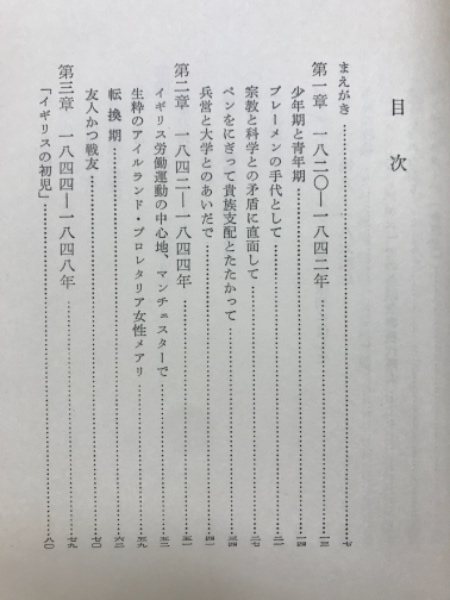 目次
まえがき……七
第一章 一八二〇―一八四二年……一三
少年期と青年期……一四
ブレーメンの手代として……二一
宗教と科学との矛盾に直面して……二七
ペンをにぎって貴族支配とたたかって……三四
兵営と大学とのあいだで……四一
第二章 一八四二―一八四四年……五一
イギリス労働運動の中心地、マンチェスターで……五二
生粋のアイルランド・プロレタリア女性メアリ……五九
転換期……六二
友人かつ戦友……七〇
第三章 一八四四―一八四八年……七九
「イギリスの初児」……八〇